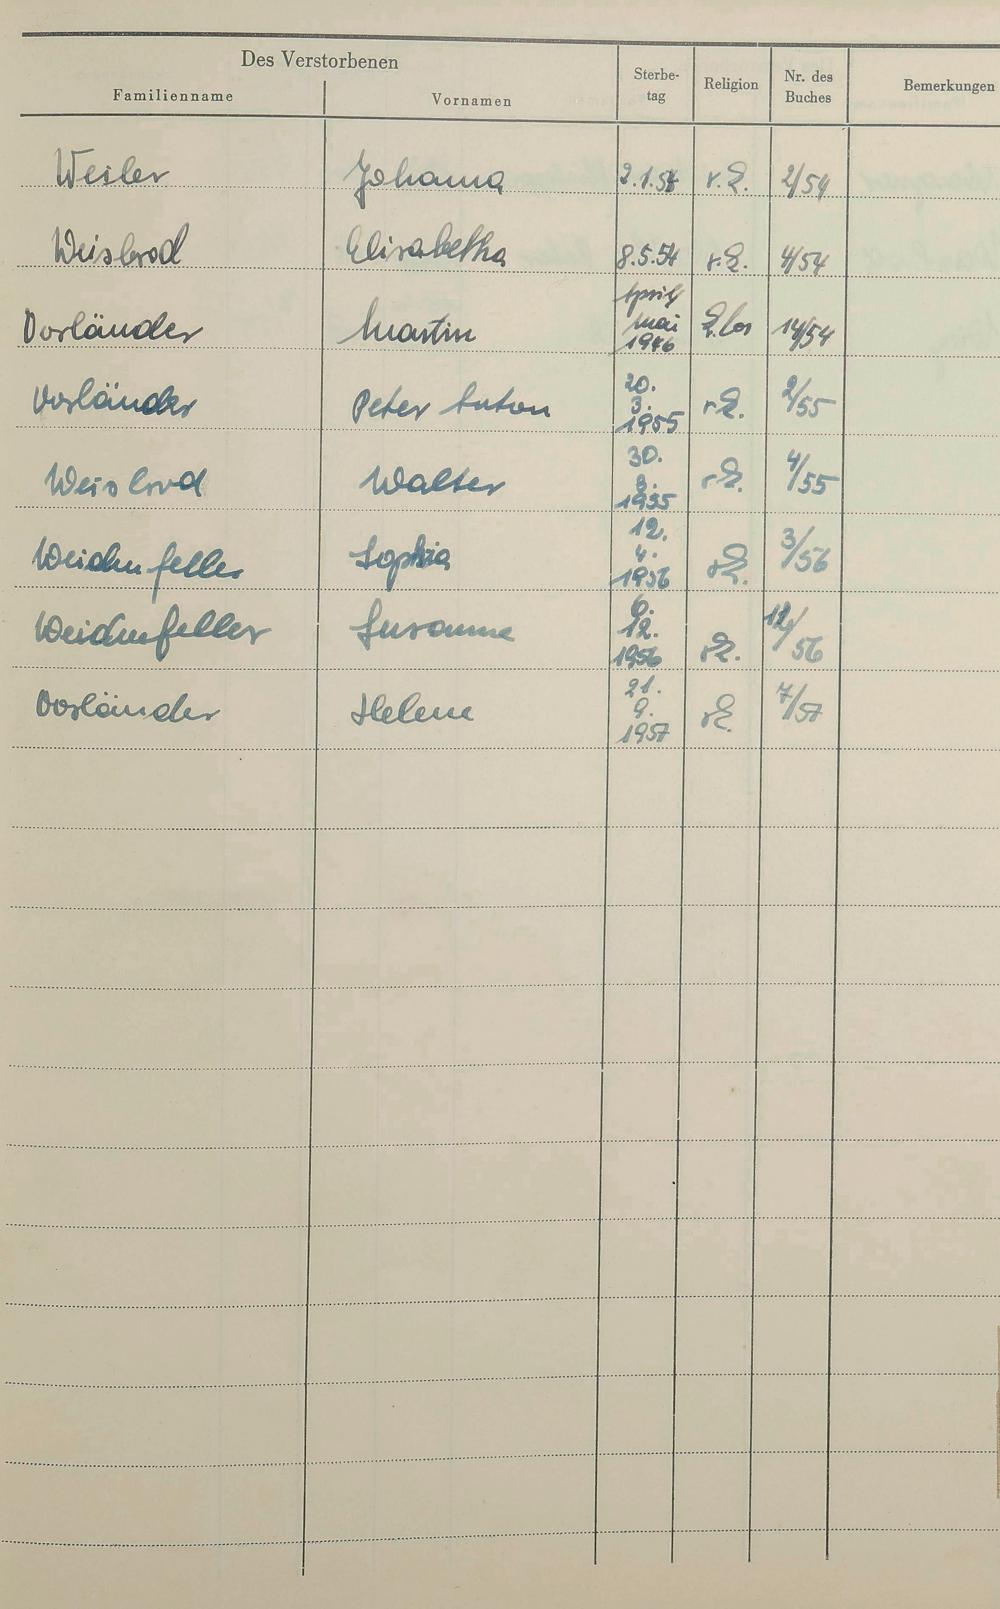 Des Verstorbenen
Familienname Vornamen Sterbe-tag Religion Nr. des Buches Bemerkungen
Weiler Johanna 2.1.54 r.K. 2/54
Weisbrod Elisabetha 8.5.54 r.K. 4/54
Vorländer Martin April Mai 1946 K.los 14/54
Vorländer Peter Anton 20. 3. 1955 r.K. 2/55
Weisbrod Walter 30. 3. 1955 r.K. 4/55
Weidenfeller Sophia 12. 4. 1956 r.K. 3/56
Weidenfeller Susanne 6. 12. 1956 r.K. 12/56
Vorländer Helene 21. 9. 1957 r.K. 7/57